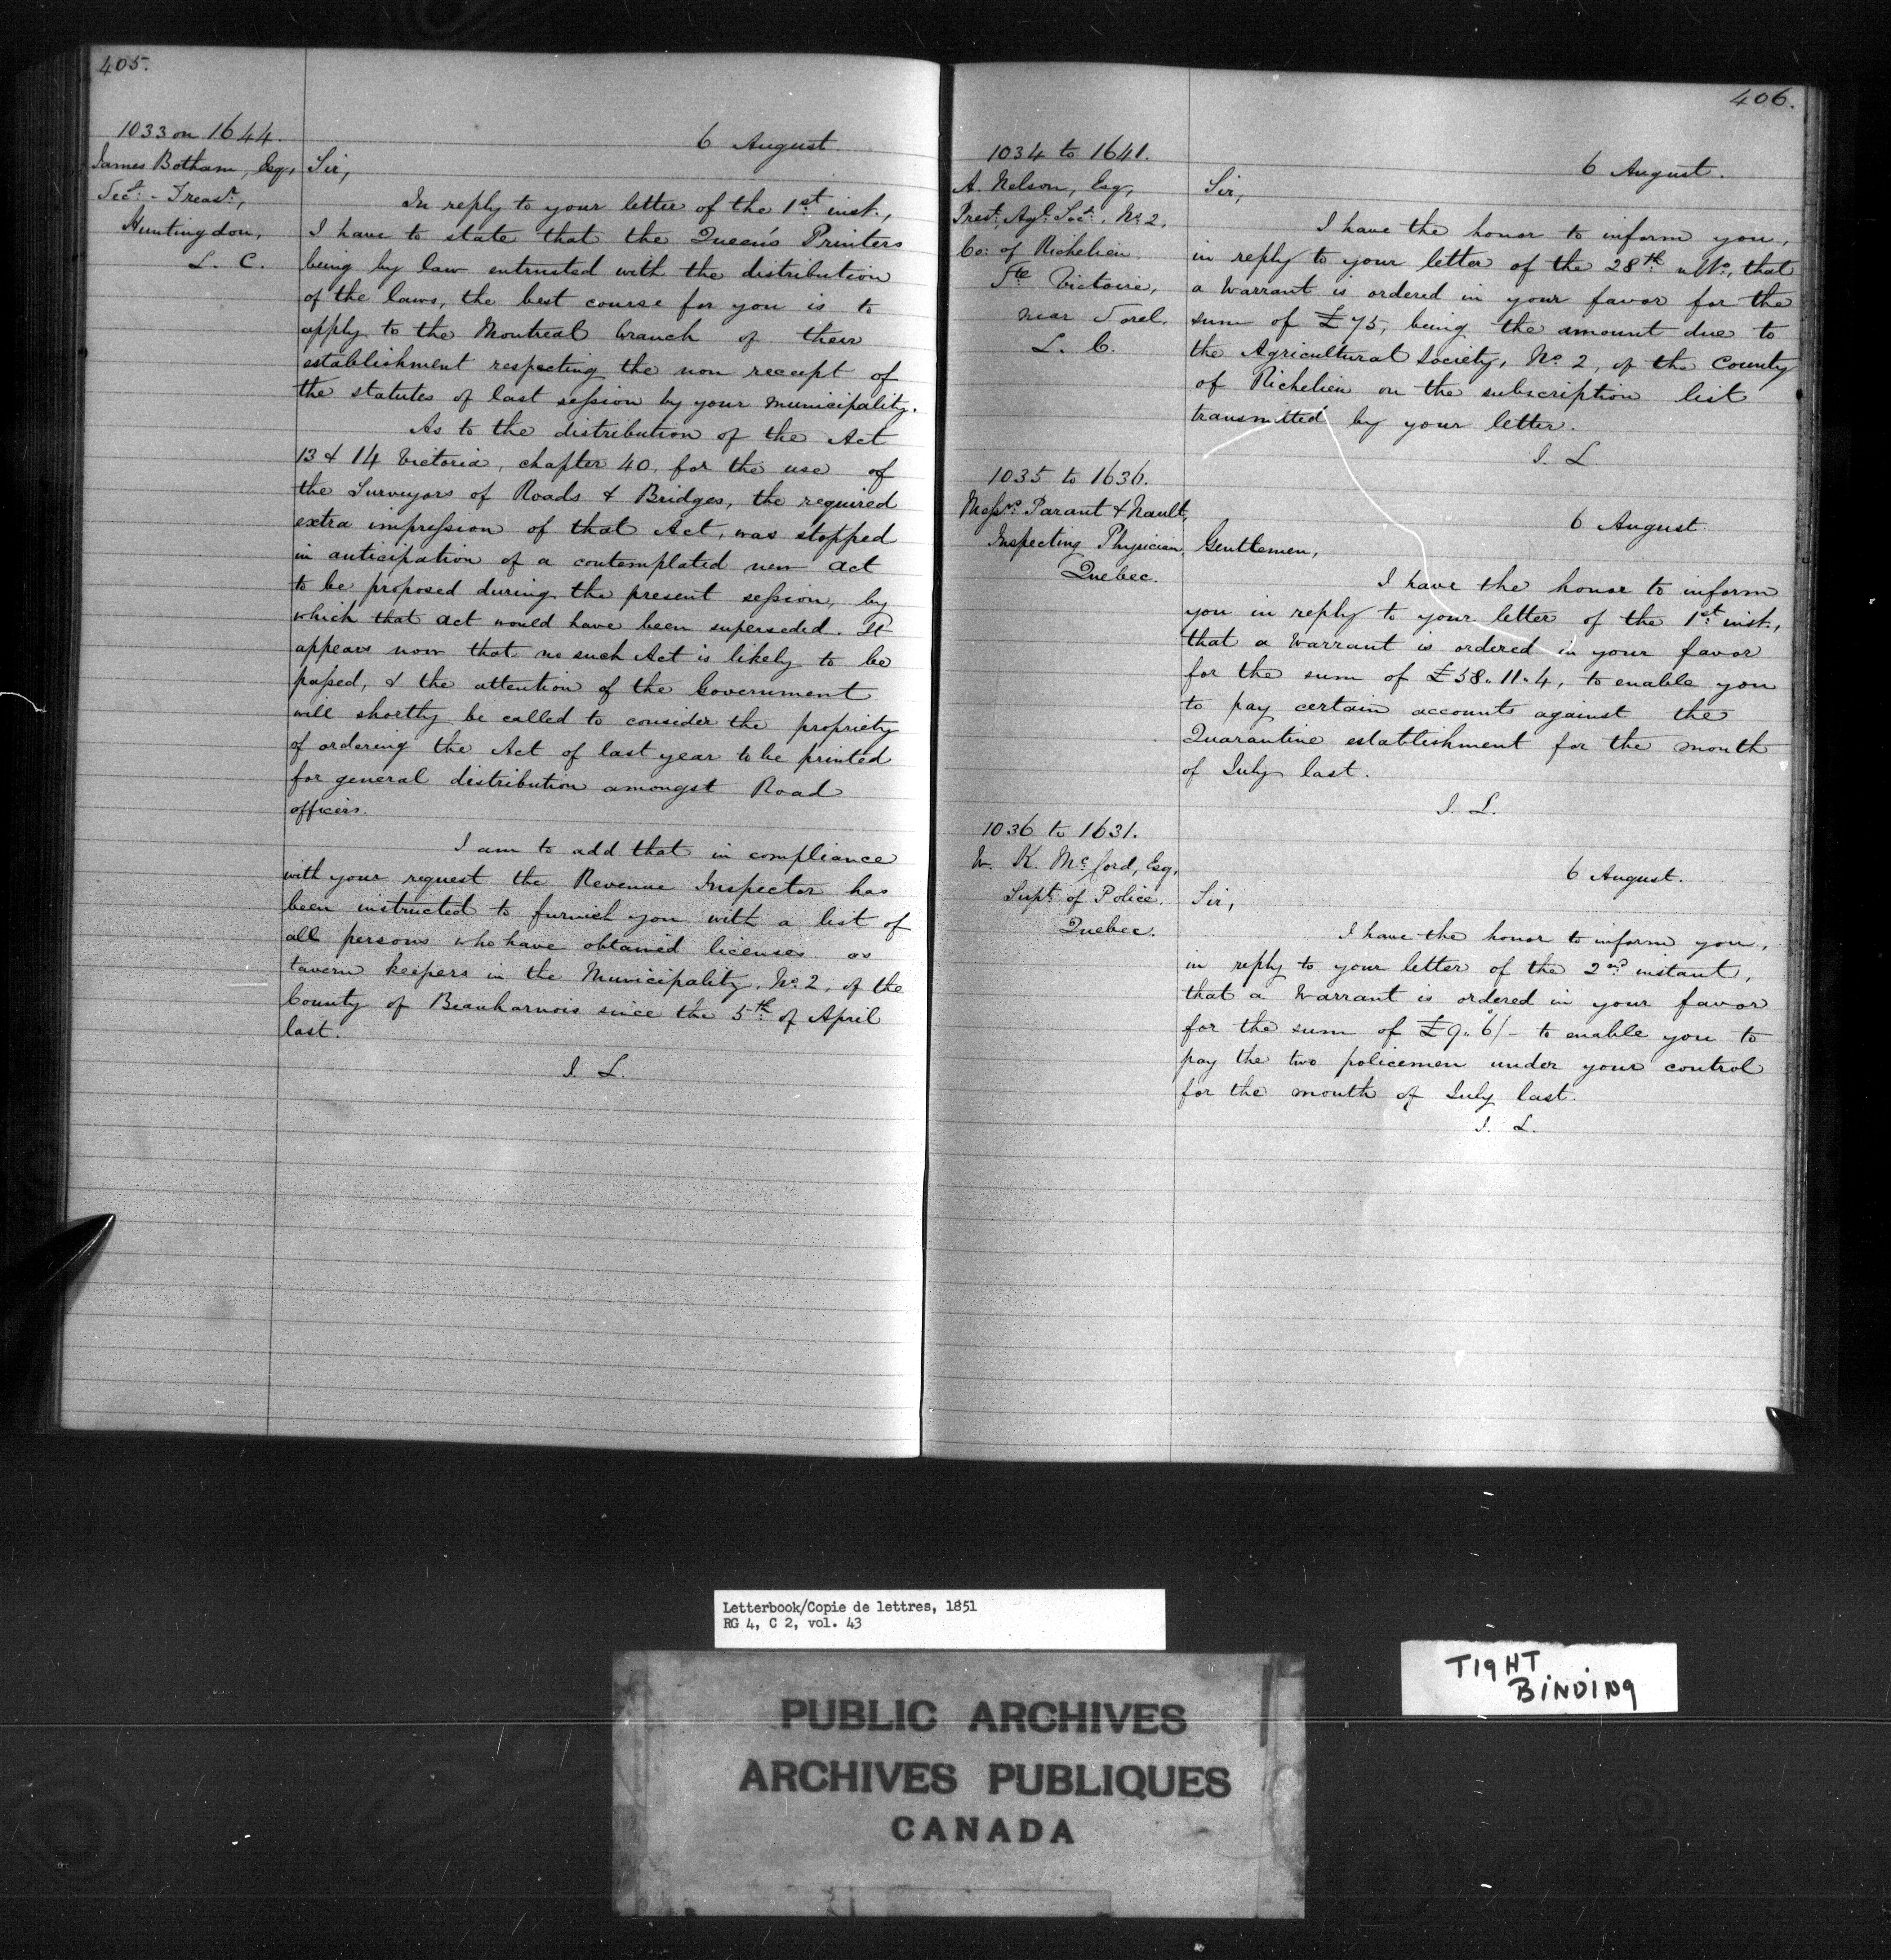 405.
1033 on 1644.
James Botham, Esq,
Secy. - Treasr.,
Huntingdon,
L. C.
6 August.
Sir,
In reply to your letter of the 1st. inst.,
I have to state that the Queen's Printers
being by law entrusted with the distribution
of the laws, the best course for you is to
apply to the Montreal branch of their
establishment respecting the non receipt of
the statutes of last session by your municipality.
As to the distribution of the Act
13 & 14 Victoria, chapter 40, for the use of
the Surveyors of Roads & Bridges, the required
extra impression of that Act, was stopped
in anticipation of a contemplated new act
to be proposed during the present session, by
which that act would have been superseded. It
appears now that no such Act is likely to be
passed, & the attention of the Government
will shortly be called to consider the propriety
of ordering the Act of last year to be printed
for general distribution amongst Road
officers.
I am to add that in compliance
with your request the Revenue Inspector has
been instructed to furnish you with a list of
all persons who have obtained licenses as
tavern keepers in the Municipality, No. 2, of the
County of Beauharnois since the 5th. of April
last.
J. L.
406.
1034 to 1641.
A. Nelson, Esq,
Prest. Agl. Socy. No. 2.
Co: of Richelieu.
Ste. Victoire,
near Sorel.
L. C.
6 August.
Sir,
I have the honor to inform you,
in reply to your letter of the 28th. ulto., that
a Warrant is ordered in your favor for the
sum of £75, being the amount due to
the Agricultural Society, No. 2, of the County
of Richelieu on the subscription list
transmitted by your letter.
J. L.
1035 to 1636.
Messrs. Parant & Nault,
Inspecting Physician,
Quebec.
6 August.
Gentlemen,
I have the honor to inform
you in reply to your letter of the 1st. inst.,
that a Warrant is ordered in your favor
for the sum of £58.. 11.. 4, to enable you
to pay certain accounts against the
Quarantine establishment for the month
of July last.
J. L.
1036 to 1631.
W. K. McCord, Esq,
Supt. of Police.
Quebec.
6 August.
Sir,
I have the honor to inform you,
in reply to your letter of the 2nd instant,
that a Warrant is ordered in your favor
for the sum of £9.. 6/- to enable you to
pay the two policemen under your control
for the month of July last.
J. L.
Letterbook/Copie de lettres, 1851
RG 4, C 2, vol. 43
TIGHT
BINDING
PUBLIC ARCHIVES
ARCHIVES PUBLIQUES
CANADA